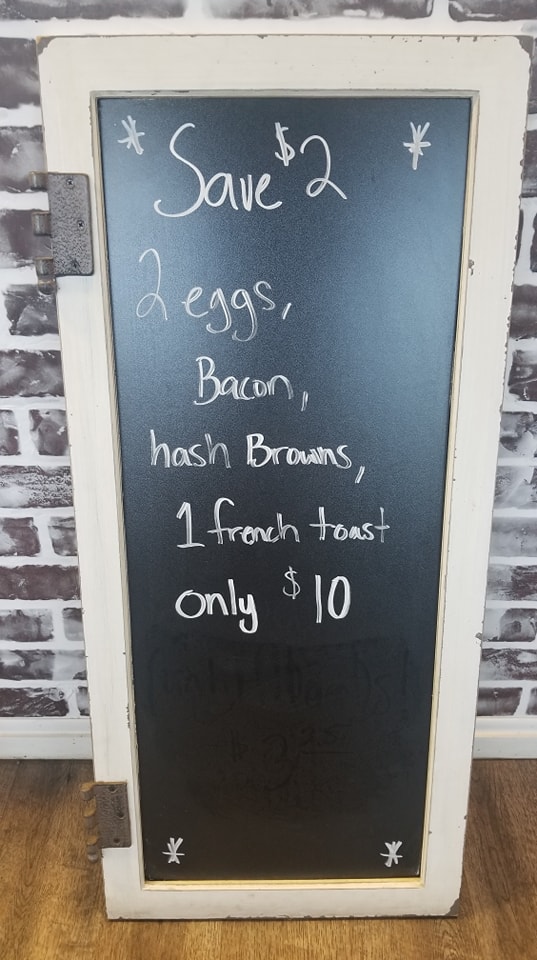 * Save $2 *
2 eggs,
Bacon,
hash Browns,
1 french toast
only $10
* *